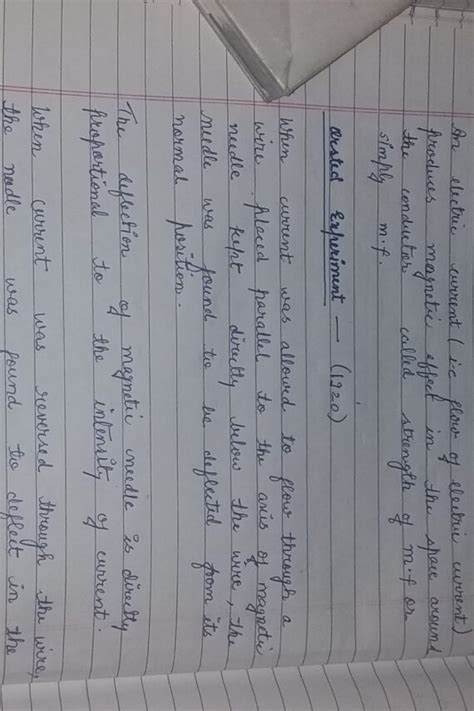 An electric current (i.e flow of electric current)
produces magnetic effect in the space around
the conductor called strength of m.f or
simply m.f.
Orsted Experiment — (1920)
When current was allowed to flow through a
wire placed parallel to the axis of magnetic
needle kept directly below the wire, the
needle was found to be deflected from its
normal position.
The deflection of magnetic needle is directly
proportional to the intensity of current.
When current was reversed through the wire,
the needle was found to deflect in the